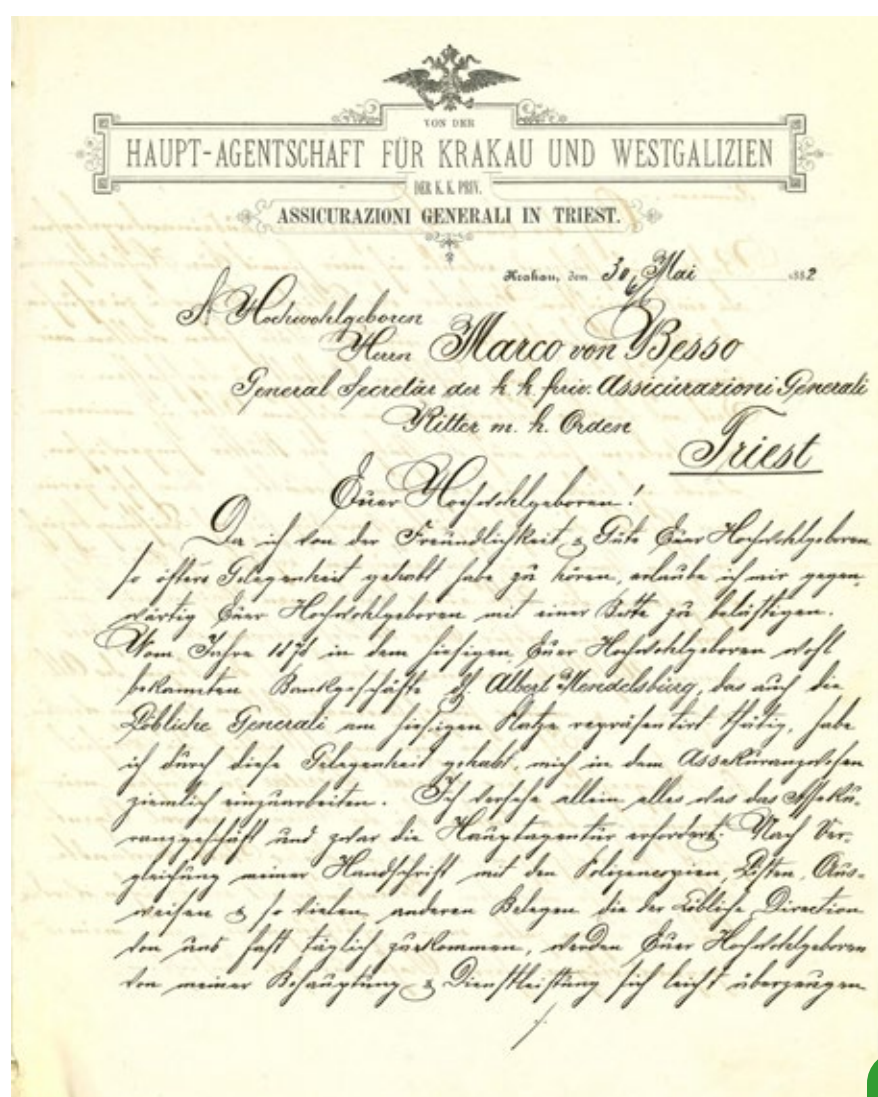 VON DER
HAUPT-AGENTSCHAFT FÜR KRAKAU UND WESTGALIZIEN
DER K. K. PRIV.
ASSICURAZIONI GENERALI IN TRIEST.
Krakau, den 30 Mai 1882
Sr Hochwohlgeboren
Herrn Marco von Besso
General Secretär der k. k. priv. Assicurazioni Generali
Ritter m. h. Orden
Triest
Euer Hochwohlgeboren!
Da ich von der Freundlichkeit & Güte Euer Hochwohlgeboren
so öftere Gelegenheit gehabt habe zu hören, erlaube ich mir gegen-
wärtig Euer Hochwohlgeboren mit einer Bitte zu belästigen.
Vom Jahre 1878 in dem hiesigen, Euer Hochwohlgeboren wohl
bekannten Bankgeschäfte Albert Mendelsburg, das auch die
Löbliche Generali am hiesigen Platze repräsentirt thätig, habe
ich durch diese Gelegenheit gehabt, mich in dem Assekuranzwesen
ziemlich einzuarbeiten. Ich versehe allein alles was das Asseku-
ranzgeschäft und zwar die Hauptagentur erfordert. Nach Ver-
gleichung meiner Handschrift mit den Polizencopien, Listen, Aus-
weisen & so vielen anderen Belegen die der Löbliche Direction
von uns fast täglich zukommen, werden Euer Hochwohlgeboren
von meiner Behauptung & Dienstleistung sich leicht überzeugen
./.